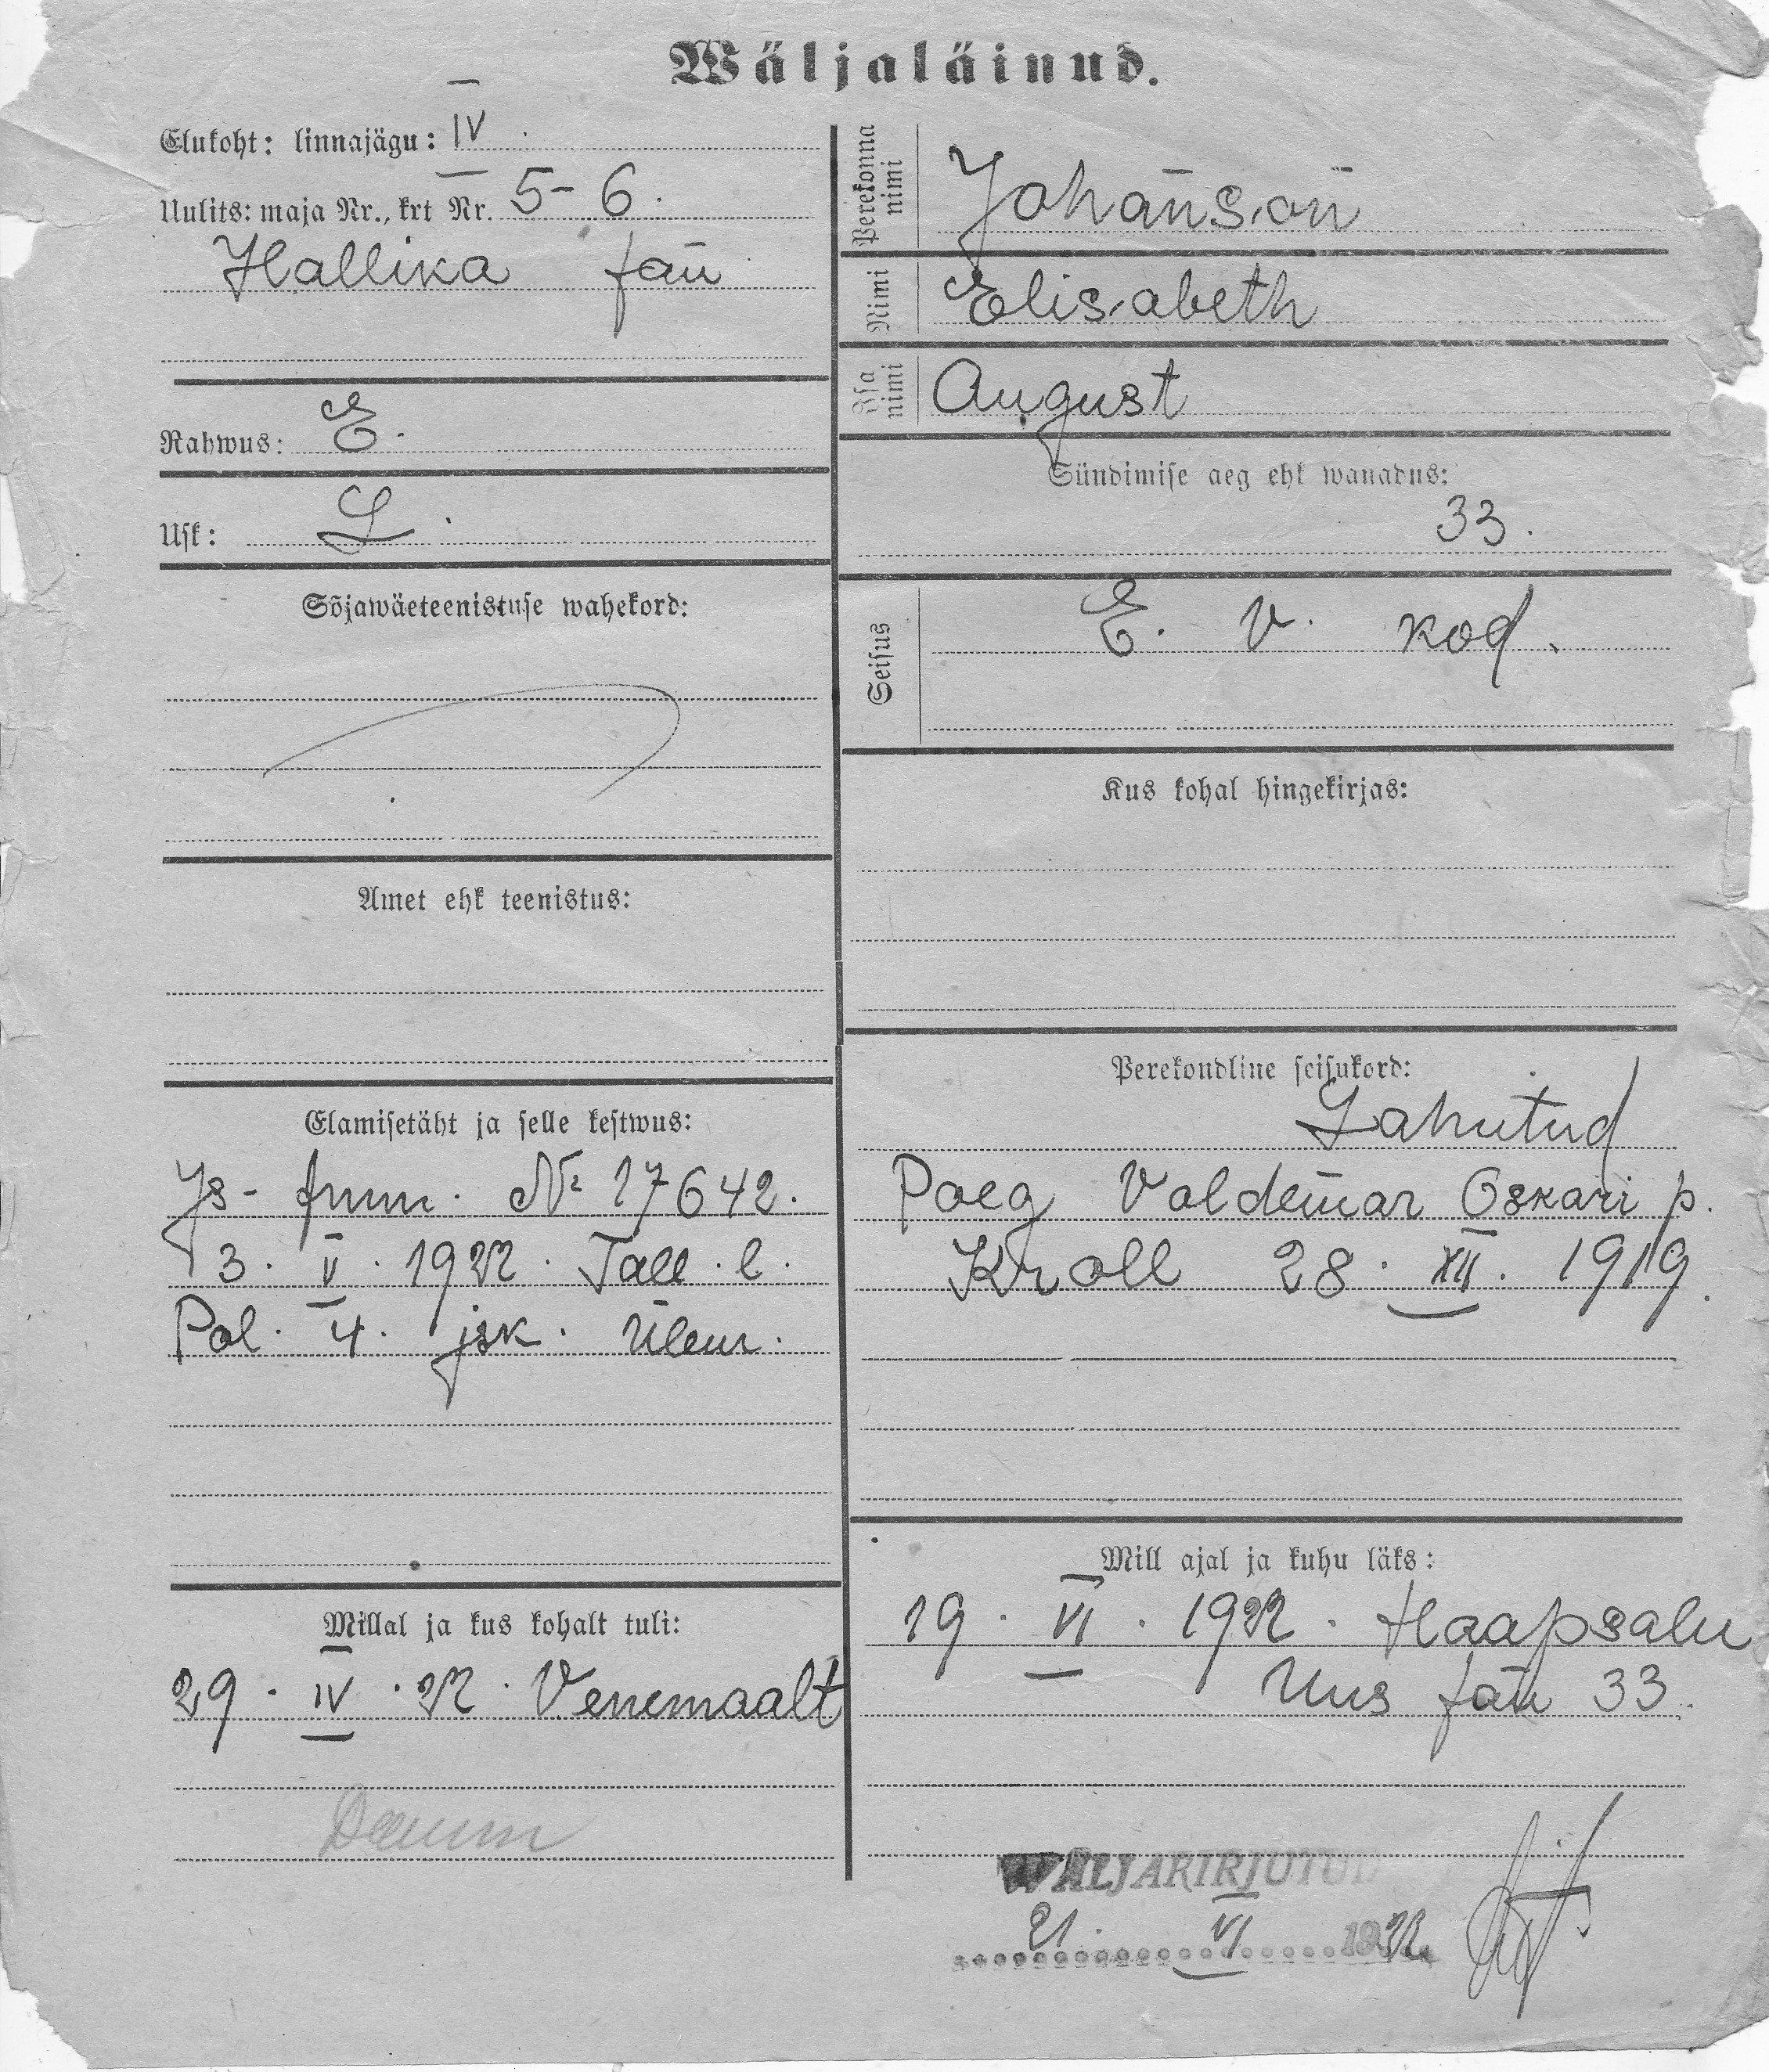 Wäljaläinud.
Elukoht: linnajägu: IV.
Uulits: maja Nr., krt Nr. 5-6.
Hallika tän
Rahwus: E.
Usk: L.
Sõjawäeteenistuse wahekord:
Amet ehk teenistus:
Elamisetäht ja selle kestwus:
Js- tunn. № 17642.
3. V. 1922. Tall. l.
Pol. 4. jsk. ülem.
Millal ja kus kohalt tuli:
29. IV. 22. Venemaalt
Perekonna nimi Johanson
Nimi Elisabeth
Isa nimi August
Sündimise aeg ehk wanadus:
33.
Seisus E. V. kod.
Kus kohal hingekirjas:
Perekondline seisukord:
Lahutud
Poeg Voldemar Oskari p.
Kroll 28. XII. 1919.
Mill ajal ja kuhu läks:
19. VI. 1922. Haapsalu
Uus tän 33.
WÄLJAKIRJUTUD
21. VI 1922.